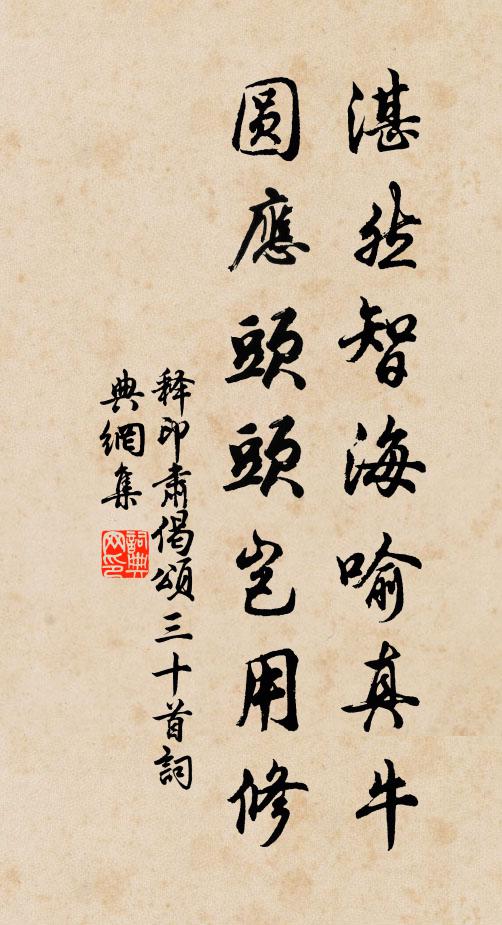 湛然智海喻真牛
圆應頭頭岂用修
释印肅偈頌三十首詞
典網集
詞典
网印